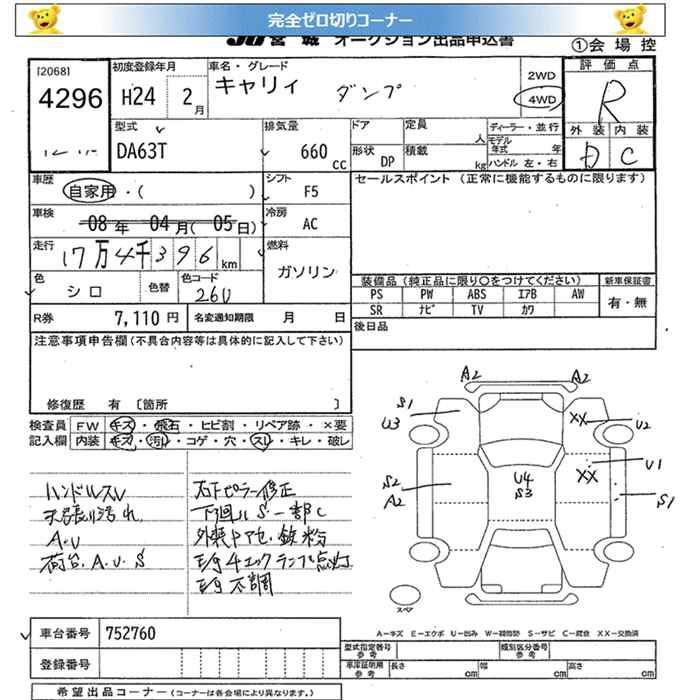 完全ゼロ切りコーナー
JU宮城 オークション出品申込書
①会場控
[2068]
4296
初度登録年月
H24 2月
車名・グレード
キャリィ ダンプ
2WD
4WD
評価点
R
型式
DA63T
排気量
660 CC
ドア
定員 人
形状 DP
積載 kg
ディーラー・並行
モデル年式 年
ハンドル 左・右
外装 内装
D C
車歴
自家用・( )
シフト
F5
セールスポイント (正常に機能するものに限ります)
車検
08年 04月(05日)
冷房
AC
走行
17万4千396km
燃料
ガソリン
色
シロ
色替
色コード
26U
装備品 (純正品に限り○をつけてください)
新車保証書
PS PW ABS エアB AW
SR ナビ TV カワ
有・無
R券 7,110円
名変通知期限 月 日
後日品
注意事項申告欄(不具合内容等は具体的に記入して下さい)
修復歴 有 〔箇所 〕
検査員記入欄
FW キズ・飛石・ヒビ割・リペア跡・×要
内装 キズ・汚レ・コゲ・穴・スレ・キレ・破レ
ハンドルスレ
天張り汚れ
A.U
荷台.A.U.S
右Fピラー修正
下廻りS一部C
外装ドアセ.鉄粉
E/gチェックランプ点灯
E/g不調
A2 A2
S1
U3
XX
U2
S2
A2
U4
S3
XX
U1
S1
スペア
A−キズ E−エクボ U−凹み W−補修跡 S−サビ C−腐食 XX−交換済
車台番号 752760
登録番号
型式指定番号 参考
類別区分番号 参考
車庫証明用 参考
長さ cm
幅 cm
高さ cm
希望出品コーナー (コーナーは各会場により異なります。)